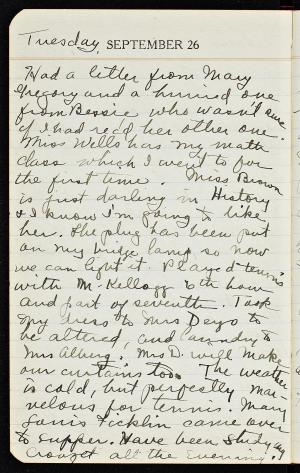 Tuesday, SEPTEMBER 26
Had a letter from Mary
Gregory and a hurried one
from Bessie who wasn't sure
if I had read her other one.
Miss Wells has my math
class which I went to for
the first time. Miss Brown
is just darling in History
& I know I'm going to like
her. The plug has been put
on my bridge lamp so now
we can light it. Played tennis
with M. Kellogg 6th hour
and part of seventh. Took
my dress to Mrs Deyo to
be altered, and laundry to
Mrs Alberg. Mrs D. will make
our curtains too. The weather
is cold, but perfectly mar-
velous for tennis. Mary
Janis Ficklin came over
to supper. Have been studying
all the evening.